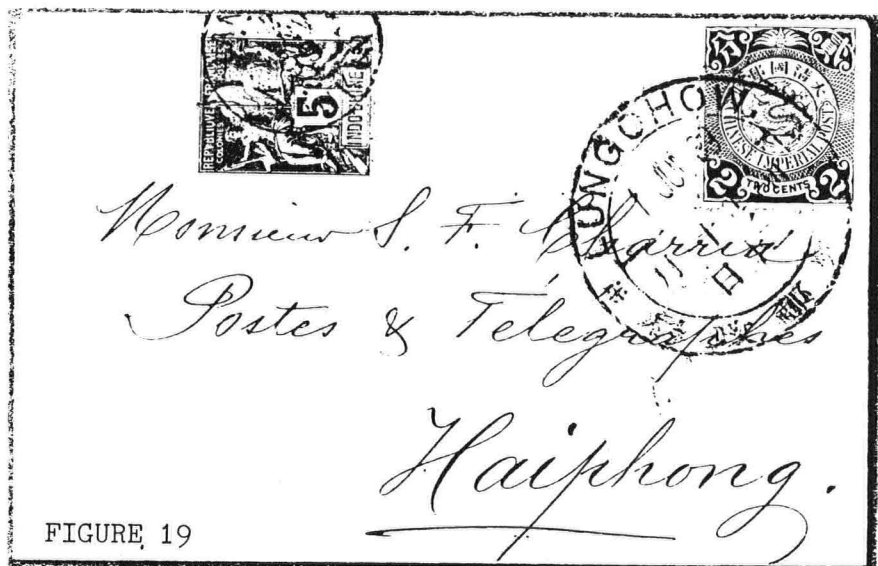 REPUBLIQUE FRANÇAISE
COLONIES
5
INDO-CHINE
大清國郵政
CHINESE IMPERIAL POST
2 TWO CENTS 2
UNGCHOW
日
Monsieur S. F. Charrix
Postes & Télégraphes
Haiphong.
FIGURE 19